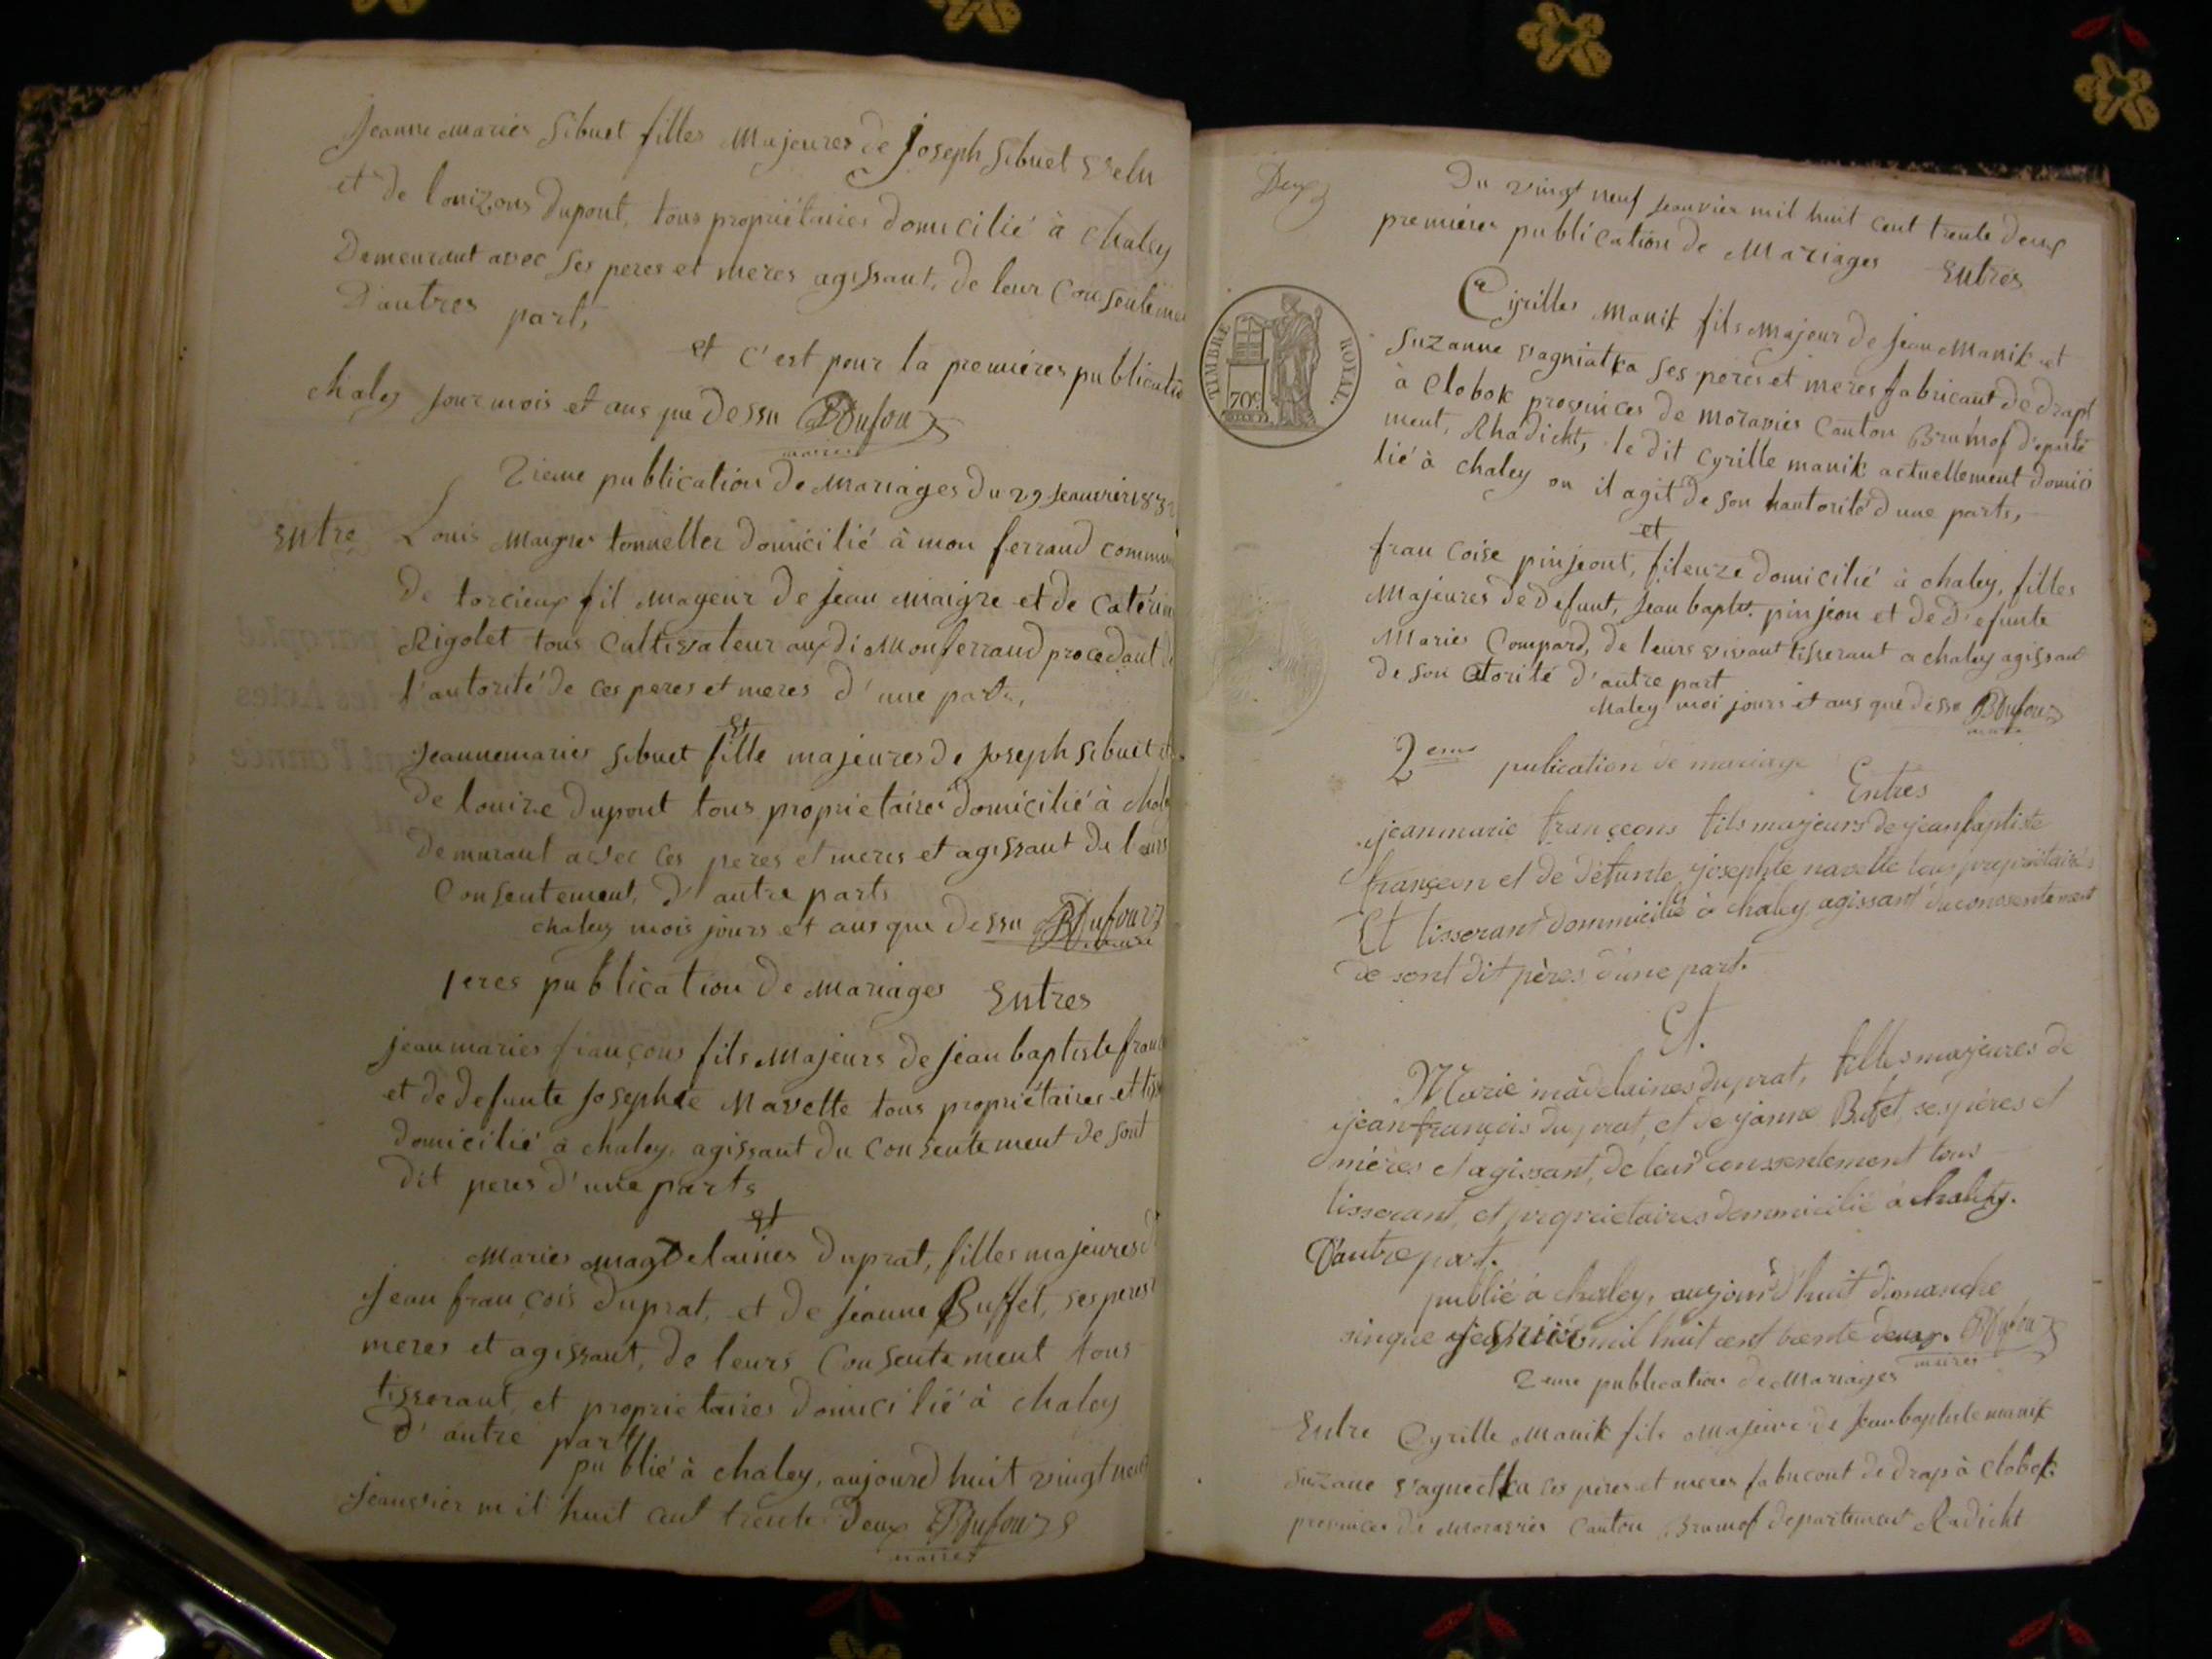 Jeanne maries Sibuet filles Majeures de Joseph Sibuet
et de louizons Dupont, tous propriétaires domicilié à chaley
Demeurant avec Ses peres et meres agissant, de leur Consenteme
D'autres part,
et c'est pour la premiéres publicatio
chaley jour mois et ans que dessu BDufour
maires
2ieme publication de Mariages du 29 Jeanvier 1832
Entre Louis Maigre tonneller domicilié à mon ferrand commun
de torcieux fil Mageur de Jean Maigre et de Catérin
Rigolet tous Cultivateur audi Monferrand procedant d
l'autorité de ces peres et meres d'une parts,
Et
Jeannemaries Sibuet fille majeures de Joseph Sibuet et
de louize Dupont tous proprietaires domicilié à chale
demurant avec ces peres et meres et agissant de leurs
Consentement, d'autre parts
chaley mois jours et ans que dessu BDufour
maire
1eres publication de Mariages Entres
jean maries françons fils Majeurs de jean baptiste fran
et de defunte Josephte Navette tous propriétaires et tiss
domicilié à chaley, agissant du Consentement de sont
dit peres d'une parts
et
Maries Magdelaines Duprat, filles majeures d
Jean françois duprat, et de Jeanne Buffet, ses peres
meres et agissant, de leurs Consentement tous
tisserant, et proprietaires domicilié à chaley
d'autre part
publié à chaley, aujourd huit vingt neuf
Jeanvier mil huit cent trente Deux BDufour
maires
Deux
Du vingt neuf Jeanvier mil huit cent trente deux
premiéres publication de Mariages Entres
Cyrilles Manik fils Majeur de Jean Manik et
Suzanne vagniatka ses peres et meres fabricant de drapt
à Clobok provinces de moravies Canton Brumof départe
ment, Rhadicht, le dit Cyrille manik actuellement domici
lié à chaley ou il agit de son hautorité d'une parts,
et
francoise pinjeont, fileuze domicilié à chaley, filles
Majeures de Defunt, Jean bapte. pinjeon et de d'efunte
Maries Compard, de leurs vivant tisserant a chaley agissant
de son atorité d'autre part
chaley moi jours et ans que dessu BDufour
maire
TIMBRE ROYAL.
70c.
2eme publication de mariage
Entres
jeanmarie françeons fils majeurs de jeanbaptiste
françeon et de défunte josephte navette tous propriétaires
Et tisserant dommicilié à chaley agissant du consentement
de sont dit pères d'une part.
Et.
Marie madelaines duprat, filles majeures de
jean françois duprat, et de janne Bufet, ses pères et
mères et agissant, de leur conssentement tous
tisserant, et proprietaires dommicilié à chaley.
D'autre part.
publié à chaley, aujourd'huit dimanche
sinque mil huit cent trente deux. BDufour
maires
2eme publication de Mariages
Entre Cyrille Manik fils Majeure de Jean baptiste manik
Suzane vagnetka ces peres et meres fabricant de drap à Clobok
provinces de Moravies Canton Brumof departement Radicht